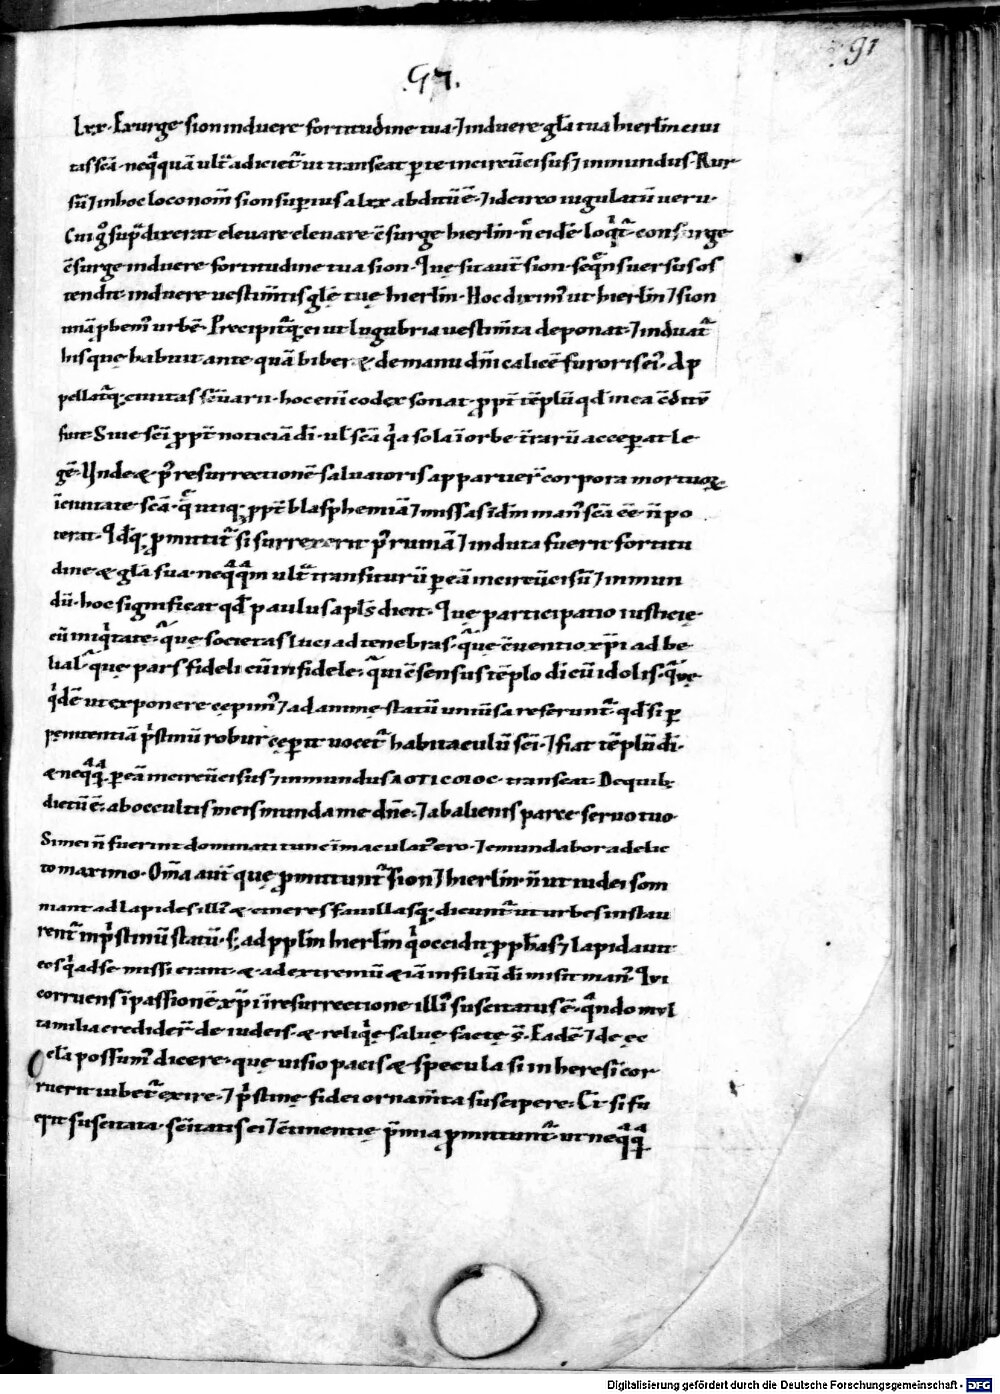 91
97.
Lxx. Exurge sion induere fortitudine tua ⁊ induere gl̄a tua hierl̄m ciui
tas sc̄a. neq̄quā ult̄ adiciet̄ ut transeat p̱ te incircūcisus ⁊ inmundus. Rur
sū ⁊ in hoc loco nom̄ sion supius a lxx abditū ē. ⁊ idcirco iugulatū ueru.
Cui g̊ sup̄ dixerat eleuare eleuare c̄surge hierl̄m. n̄c eidē loq̄t̄. consurge
c̄surge induere fortitudine tua sion. Que sit aut̄ sion. seq̄ns uersus os
tendit. induere uestim̄tis glę tuę hierl̄m. Hoc dixim᷒ ut hierl̄m ⁊ sion
unā ꝓbem᷒ urbē. Precipit̄q; ei ut lugubria uestim̄ta deponat. ⁊ induat̄
hisque habuit ante quā biber& de manu dn̄i calicē furoris ei᷒. Ap
pellat̄q; ciuitas sc̄uarii. hoc eni codex sonat. ꝓpt̄ tēplū qd̄ in ea c̄ditū
fuit. Siue sc̄i ꝓpt̄ noticiā dī. ul̄ sc̄a q̇a sola ī orbe t̄rarū acceperat le
gē. Unde & p᷒ resurrectionē saluatoris apparuer̄ corpora mortuoꝝ
ī ciuitate sc̄a. q̄ utiq; ꝓpt̄ blasphemiā ⁊ missas ī dm̄ man᷒ sc̄a eē n̄ po
terat. Idq; ꝓmittit̄ si surrexerit p᷒ ruinā ⁊ induta fuerit fortitu
dine & gl̄a sua. neq̄q̄m ult̄ transiturū p̱ eā incircūcisū ⁊ inmun
dū. hoc significat qd̄ paulus apl̄s dicit. Que participatio iusticię
cū iniq̇tate. q̄ue societas luci ad tenebras. q̄ue c̄uentio xp̄i ad be
lial. q̄ue pars fideli cū infidele. q̄ui c̄sensus tēplo di cū idolis. q̄ue
q̇dē ut exponere cępim᷒ ⁊ ad animę statū uniūsa reserunt̄. qd̄ si p̱
pęnitentiā ṗstinū robur cęperit uocet̄ habitaculū sc̄i. ⁊ fiat tēplū dī.
& neq̄q̄ p̱ eā incircūcisus ⁊ inmundus ΛΟΓΙCΟΙΟC. transeat. De quib;
dictū ē. ab occultis meis munda me dn̄e. ⁊ ab alienis parce seruo tuo.
Si mei n̄ fuerint dominati tunc īmaculat᷒ ero. ⁊ emundabor a delic
to maximo. Om̄a aut̄ quę ꝓmittunt̄ sion ⁊ hierl̄m. n̄ ut iudei som
niant ad lapides illi᷒ & cineres fauillasq; dicunt̄ ut urbes instau
rent̄ in ṗstinū statū. s; ad ppl̄m hierl̄m q̇ occidit ꝓphas ⁊ lapidauit
eos q̇ ad se missi erant. & ad extremū & iā in filiū dī misit man᷒. Qui
corruens ī passionē xp̄i ī resurrectione illi᷒ suscitatus ē. q̄ndo mul
ta milia credider̄ de iudeis. & reliq̇ę saluę factę s̄. Eadē ⁊ de ęc
cl̄a possum᷒ dicere. quę uisio pacis & specula si in heresi cor
ruerit iubet̄ exire. ⁊ ṗstinę fidei ornam̄ta suscipere. Et si fu
erit suscitata. sc̄itatis ei ⁊ c̄tinentię p̄mia ꝓmittunt̄. ut neq̄q̄
Digitalisierung gefördert durch die Deutsche Forschungsgemeinschaft - DFG